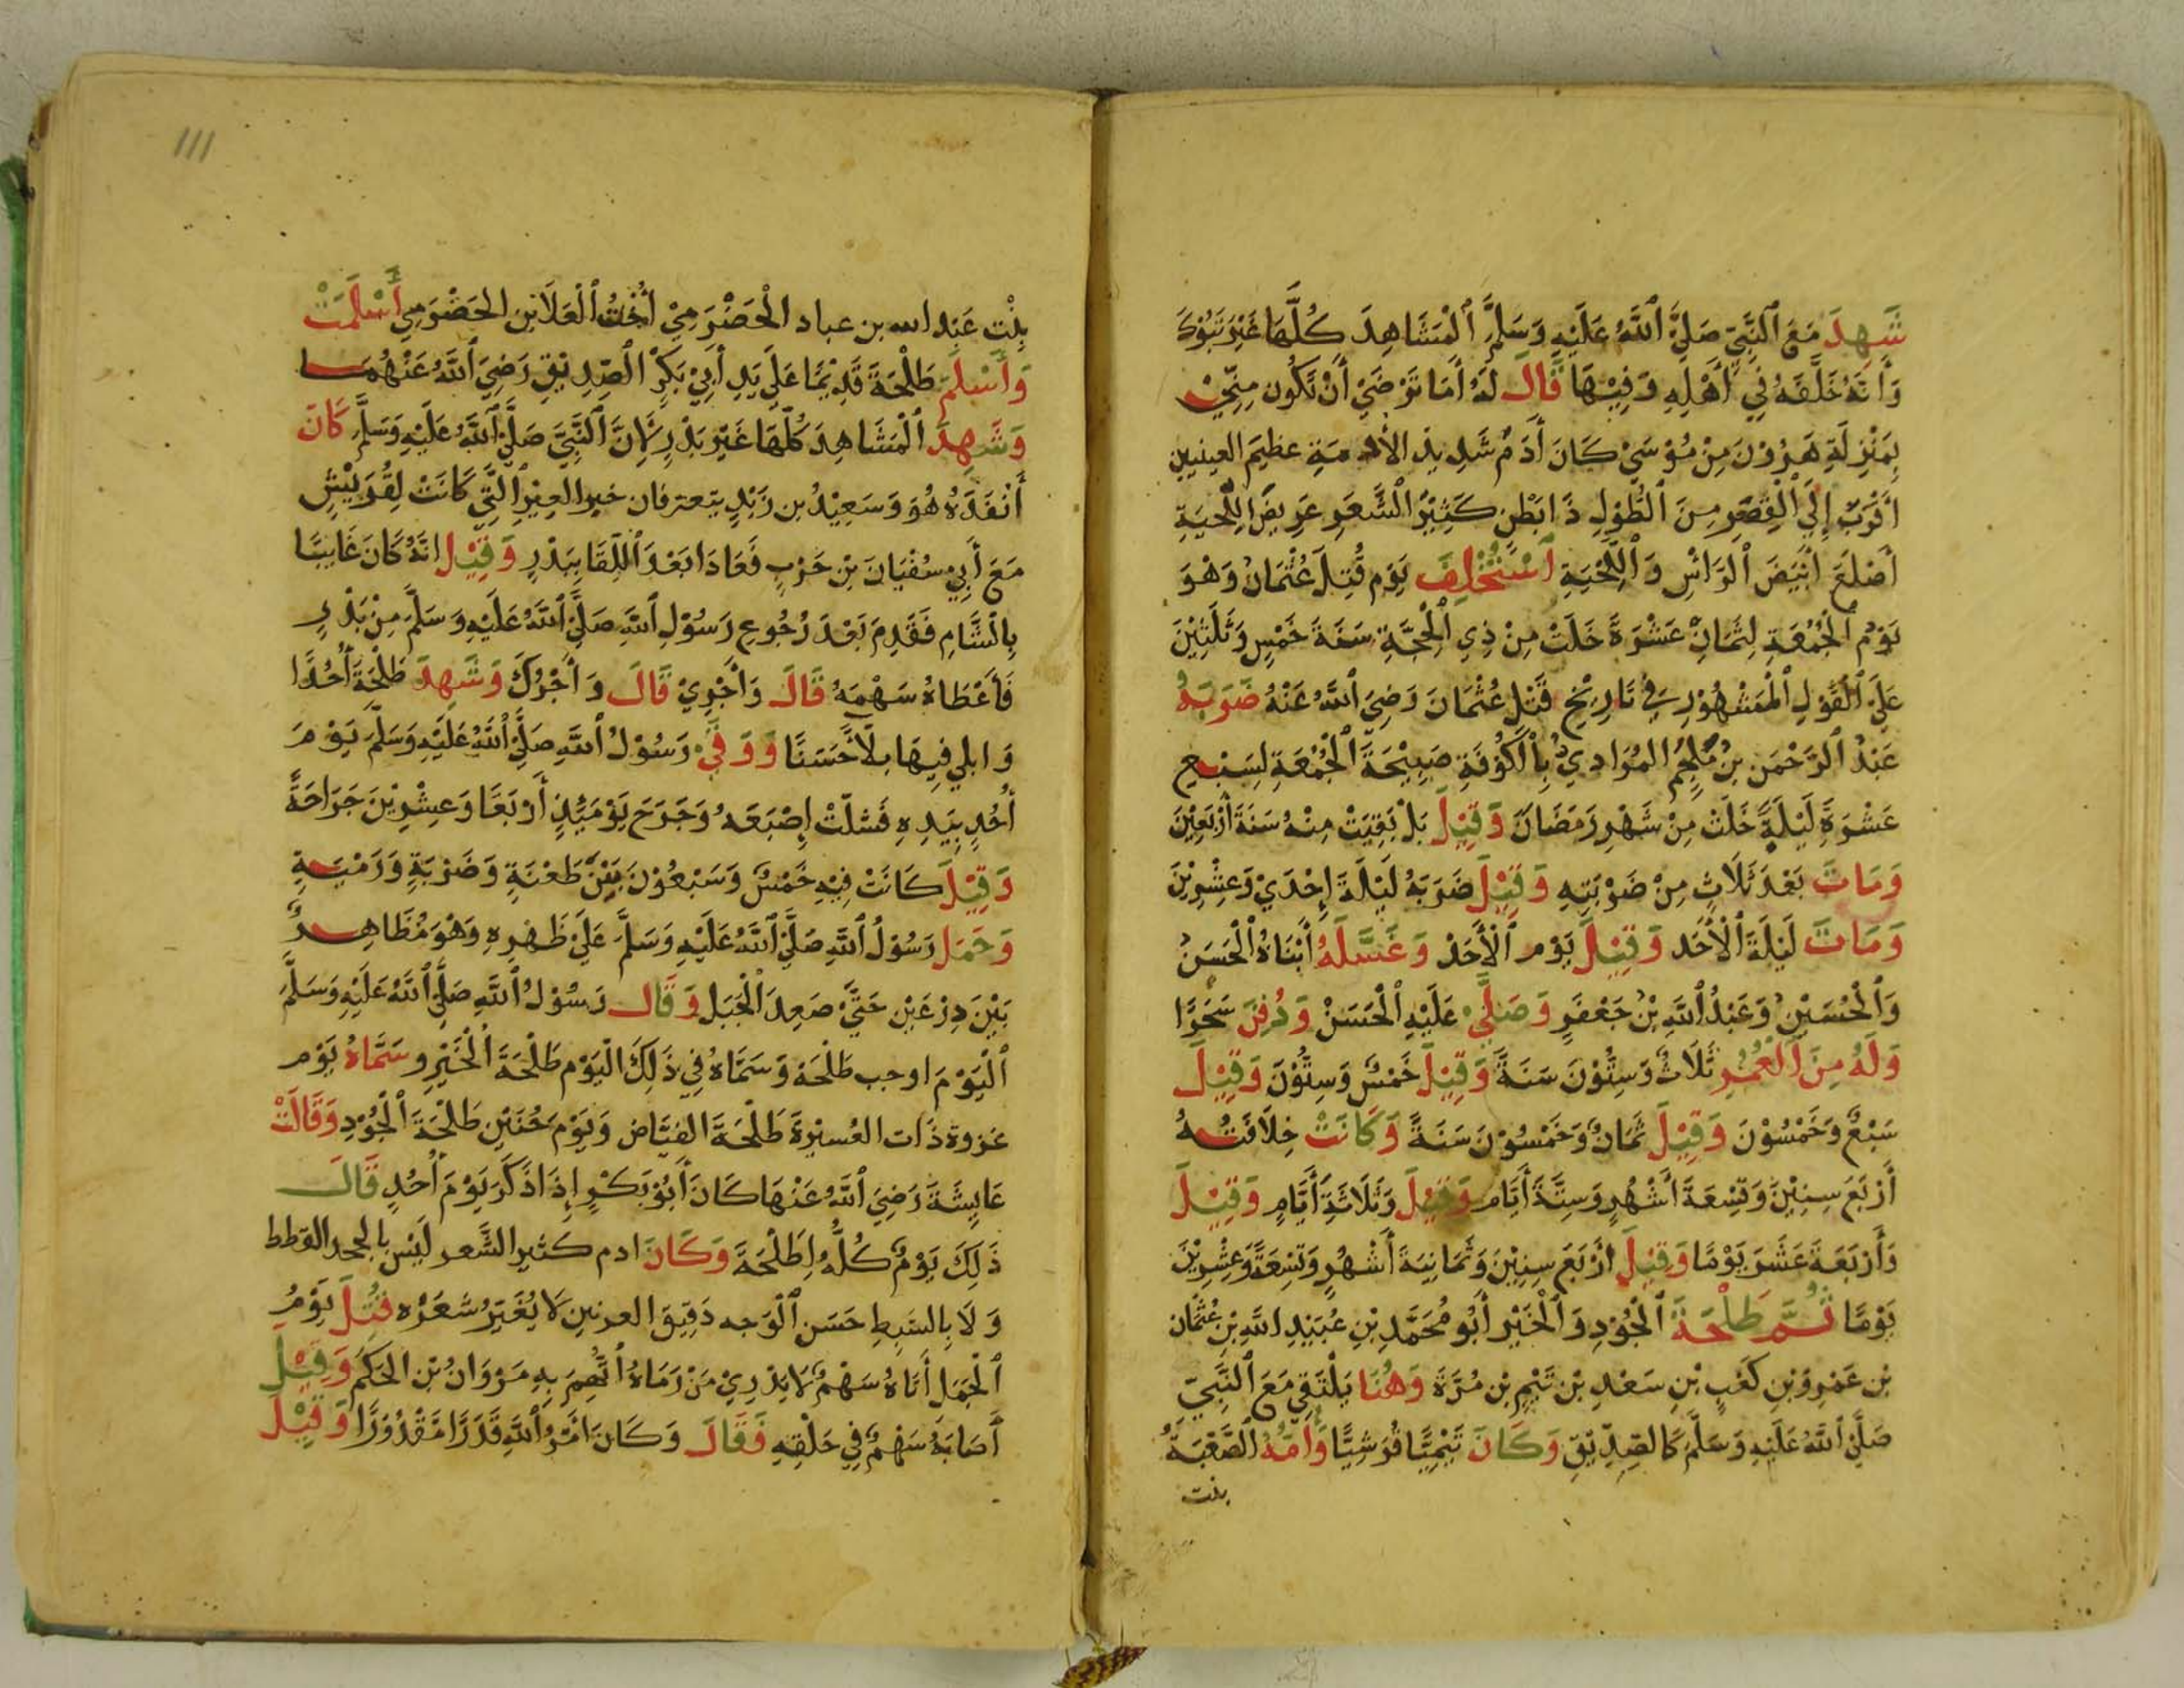 شَهِدَ مَعَ ٱلنَّبِيِّ صَلَّىٰ ٱللَّهُ عَلَيْهِ وَسَلَّمَ ٱلْمَشَاهِدَ كُلَّهَا غَيْرَ تَبُوْكَ
وَأَنَّهُ خَلَّفَهُ فِي أَهْلِهِ وَفِيْهَا قَالَ لَهُ أَمَا تَرْضَيٰ أَنْ تَكُون مِنِّيْ
بِمَنْزِلَةِ هَرُوْنَ مِنْ مُوْسَيْ كَانَ أَدَمُ شَدِيدِ الأدمَةِ عظيم العينين
اقْرَبُ إِلَي ٱلْقِصَرِ مِنَ ٱلطُّولِ ذَا بَطْنٍ كَثِيْرُ الْشَّعَرِ عَرِيضَ اللِّحْيَةِ
أَصْلَعَ أَبْيَضَ ٱلرَّاسِ وَٱللِّحْيَةِ ٱسْتُخْلِفَ يَوم قُتِلَ عُثْمَانُ وَهُوَ
يَوْمُ ٱلْجُمْعَةِ لِثَمَانِ عَشْرَةَ خَلَتْ مِنْ ذِي ٱلْحِجَّةِ سَنَةَ خَمْسٍ وَثَلَثِيْنَ
عَلَي ٱلْقَوْلِ ٱلْمَشْهُوْرِ فِي تَارِيْخِ قَتْلِ عُثْمَانَ رَضِيَ ٱللَّهُ عَنْهُ ضَرَبَهُ
عَبْدُ ٱلرَّحْمَنِ بنُ مُلْجِمُ المُرَادِيُّ بِٱلْكُوْفَةِ صَبِيْحَةَ ٱلْجُمْعَةِ لِسَبْعِ
عَشْرَةِ لَيْلَةٍ خَلَتْ مِنْ شَهْرِ رَمَضَانَ وَقِيْلَ بَلْ بَقِيَتْ مِنْهُ سَنَةَ أَرْبَعِيْنَ
وَمَاتَ بَعْدَ ثَلَاثٍ مِنْ ضَرْبَتِهِ وَقِيْلَ ضَرَبَهُ لَيْلَةَ إِحْدَيْ وَعِشْرِيْنَ
وَمَاتَ لَيْلَةَ ٱلْأَحَد وَقِيْلَ يَوْم ٱلْأَحَدْ وَغَسَّلَهُ أَبْنَاهُ ٱلْحَسَنُ
وَٱلْحُسَيْنِ وَعَبْدُ ٱللَّهِ بْنُ جَعْفَرٍ وَصَلَّيْ عَلَيْهِ ٱلْحَسَنْ وَدُفِنَ سَحَرًا
وَلَهُ مِنَ ٱلْعُمُرِ ثَلَاثُ وَسِتُّوْنَ سَنَةً وَقِيْلَ خَمْسٌ وَسِتُّوْنَ وَقِيْلَ
سَبْعٌ وَخَمْسُوْنَ وَقِيْلَ ثَمَانٌ وَخَمْسُوْنَ سَنَةً وَكَانَتْ خِلَافَتُهُ
أَرْبَعَ سِنِيْنَ وَتِسْعَةَ أَشْهُرٍ وَسِتَّةَ أَيَّام وَقِيْلَ وَثَلَاثَةَ أَيَّامٍ وَقِيْلَ
وَأَرْبَعَةَ عَشَرَ يَوْمًا وَقِيْلَ أَرْبَعَ سِنِيْنَ وَثَمَانِيَةَ أَشْهُرٍ وَتِسْعَةً وَعِشْرِيْنَ
يَوْمًا ثُمَّ طَلْحَةَ ٱلْجُوْدِ وَٱلْخَيْرِ أَبُو مُحَمَّدِ بْنِ عُبَيْدِ اللَّهِ بْنِ عُثْمَان
بْنِ عَمْرِوْ بْنِ كَعْبٍ بْنِ سَعْدِ بْنِ تَيْمِ بْنِ مُرَّةَ وَهُنَا يَلْتَقِي مَعَ ٱلنَّبِيِّ
صَلَّىٰ ٱللَّهُ عَلَيْهِ وَسَلَّمَ كَالصِّدِّيْقِ وَكَانَ تَيْمِيًّا قُرَشِيًّا وَأُمُّهُ الصَّعْبَةُ
بنت
111
بِنْت عَبْدِ الله بن عباد الْحَضْرَمِيْ أُخْتُ ٱلْعَلَاءِ بْنِ الحَضْرَمِي أَسْلَمَتْ
وَأَسْلَمَ طَلْحَةَ قَدِيْمًا عَلَي يَدِ أَبِيْ بَكْرِ الْصِّدِيْقِ رَضِيَ ٱللَّهُ عَنْهُمَا
وَشَهِدَ ٱلْمَشَاهِدَ كُلَّهَا غَيْرَ بَدْرٍ لِأَنَّ ٱلنَّبِيَّ صَلَّىٰ ٱللَّهُ عَلَيْهِ وَسَلَّمَ كَانَ
أَنْفَذَهُ هُوَ وَسَعِيْدُ بن زَيْدٍ يتعرفان خبر العِيْرِ ٱلَّتِيْ كَانَتْ لِقُرَيْشٍ
مَعَ أَبِيْ سُفْيَانَ بْنِ حَرْبٍ فَعَادَا بَعْدَ ٱللِّقَا بِبَدْرٍ وَقِيْل انَّهُ كَانَ غَايبًا
بِالْشَّامِ فَقَدِمَ بَعْدَ رُجُوعِ رَسُوْلِ ٱللَّهِ صَلَّىٰ ٱللَّهُ عَلَيْهِ وَسَلَّمَ مِنْ بَدْرٍ
فَأَعْطَاهُ سَهْمَهُ قَالَ وَأَجْرِيْ قَالَ وَأَجْرُكَ وَشَهِدَ طَلْحَةَ أُحُدًا
وَابلي فِيهَا بِلَاًحَسَنًا وَوَقَيْ رَسُوْلُ ٱللَّهِ صَلَّىٰ ٱللَّهُ عَلَيْهِ وَسَلَّمَ يَوْمَ
أُحُدٍ بِيَدِهِ فَشلَّتْ إِصْبَعَهُ وَجَرَحَ يَوْمَيِّذٍ أَرْبَعًا وَعِشْرِيْنَ جَرَاحَةً
وَقِيْلَ كَانَتْ فِيْهِ خَمْسٌ وَسَبْعُوْنَ بَيْنَ طَعْنَةٍ وَضَرْبَةٍ وَرَمْيَةٍ
وَحَمَل رَسُوْلُ ٱللَّهِ صَلَّىٰ ٱللَّهُ عَلَيْهِ وَسَلَّمَ عَلَيْ ظَهْرِهِ وَهُوَ مُظَاهِرٌ
بَيْنَ دِرْعَيْنِ حَتَّيْ صَعِدَ ٱلْجَبَل وَقَال رَسُوْلُ ٱللَّهِ صَلَّىٰ ٱللَّهُ عَلَيْهِ وَسَلَّمَ
ٱلْيَوْمَ اوجب طَلْحَة وَسَمَّاهُ فِي ذَلِكَ الْيَوْم طَلْحَةَ ٱلْخَيْرِ وسَمَّاهُ يَوْم
غزوة ذَات العُسيْرَةَ طَلْحَةَ الفَيَّاض وَيَوْمَ حُنَيْنٍ طَلْحَةَ ٱلْجُوْدِ وَقَالَتْ
عَايِشَةَ رَضِيَ ٱللَّهُ عَنْهَا كَانَ أَبُوْ بَكْرٍ إِذَا ذَكَرَ يَوْمَ أُحُدٍ قَالَ
ذَلِكَ يَوْمٌ كُلُّهُ لِطَلْحَةَ وَكَانَ ادم كثير الشَّعر لَيْسَ بالجعد القطط
وَلَا بِالسَّبِطِ حَسَن ٱلْوَجه دَقِيق العرنين لَا يُغَيِّرُ شَعَرَه قُتِلَ يَوْمُ
ٱلْجَمَل أَتَاهُ سَهْمٌ لَا يَدْرِيْ مَنْ رَمَاهُ ٱتُّهِمَ بِهِ مَرْوَانُ بْن الحَكَم وَقِيْلَ
أَصَابَهُ سَهْمٌ فِي حَلْقِهِ فَقَالَ وَكَانَ امْرُ ٱللَّهِ قَدَرًا مَقْدُوْرًا وَقِيْلَ